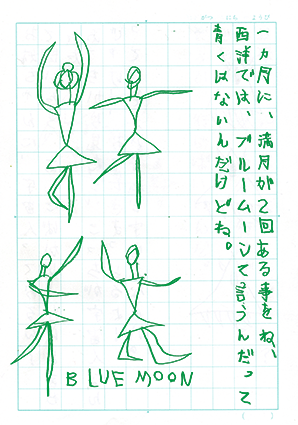 一ヵ月に、満月が2回ある事をね、
西洋では、ブルームーンて言うんだって
青くはないんだけどね。
BLUE MOON